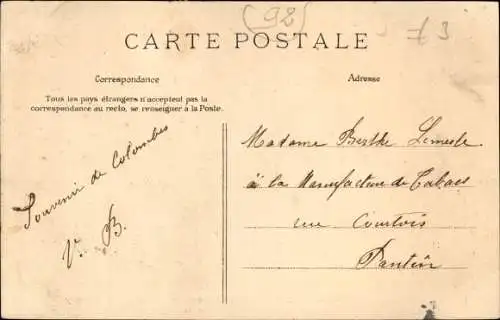 (92)
CARTE POSTALE
Correspondance
Tous les pays étrangers n'acceptent pas la
correspondance au recto, se renseigner à la Poste.
Souvenir de Colombes
V. B.
Adresse
Madame Berthe Lemesle
à la Manufacture de Tabacs
rue Courtois
Pantin